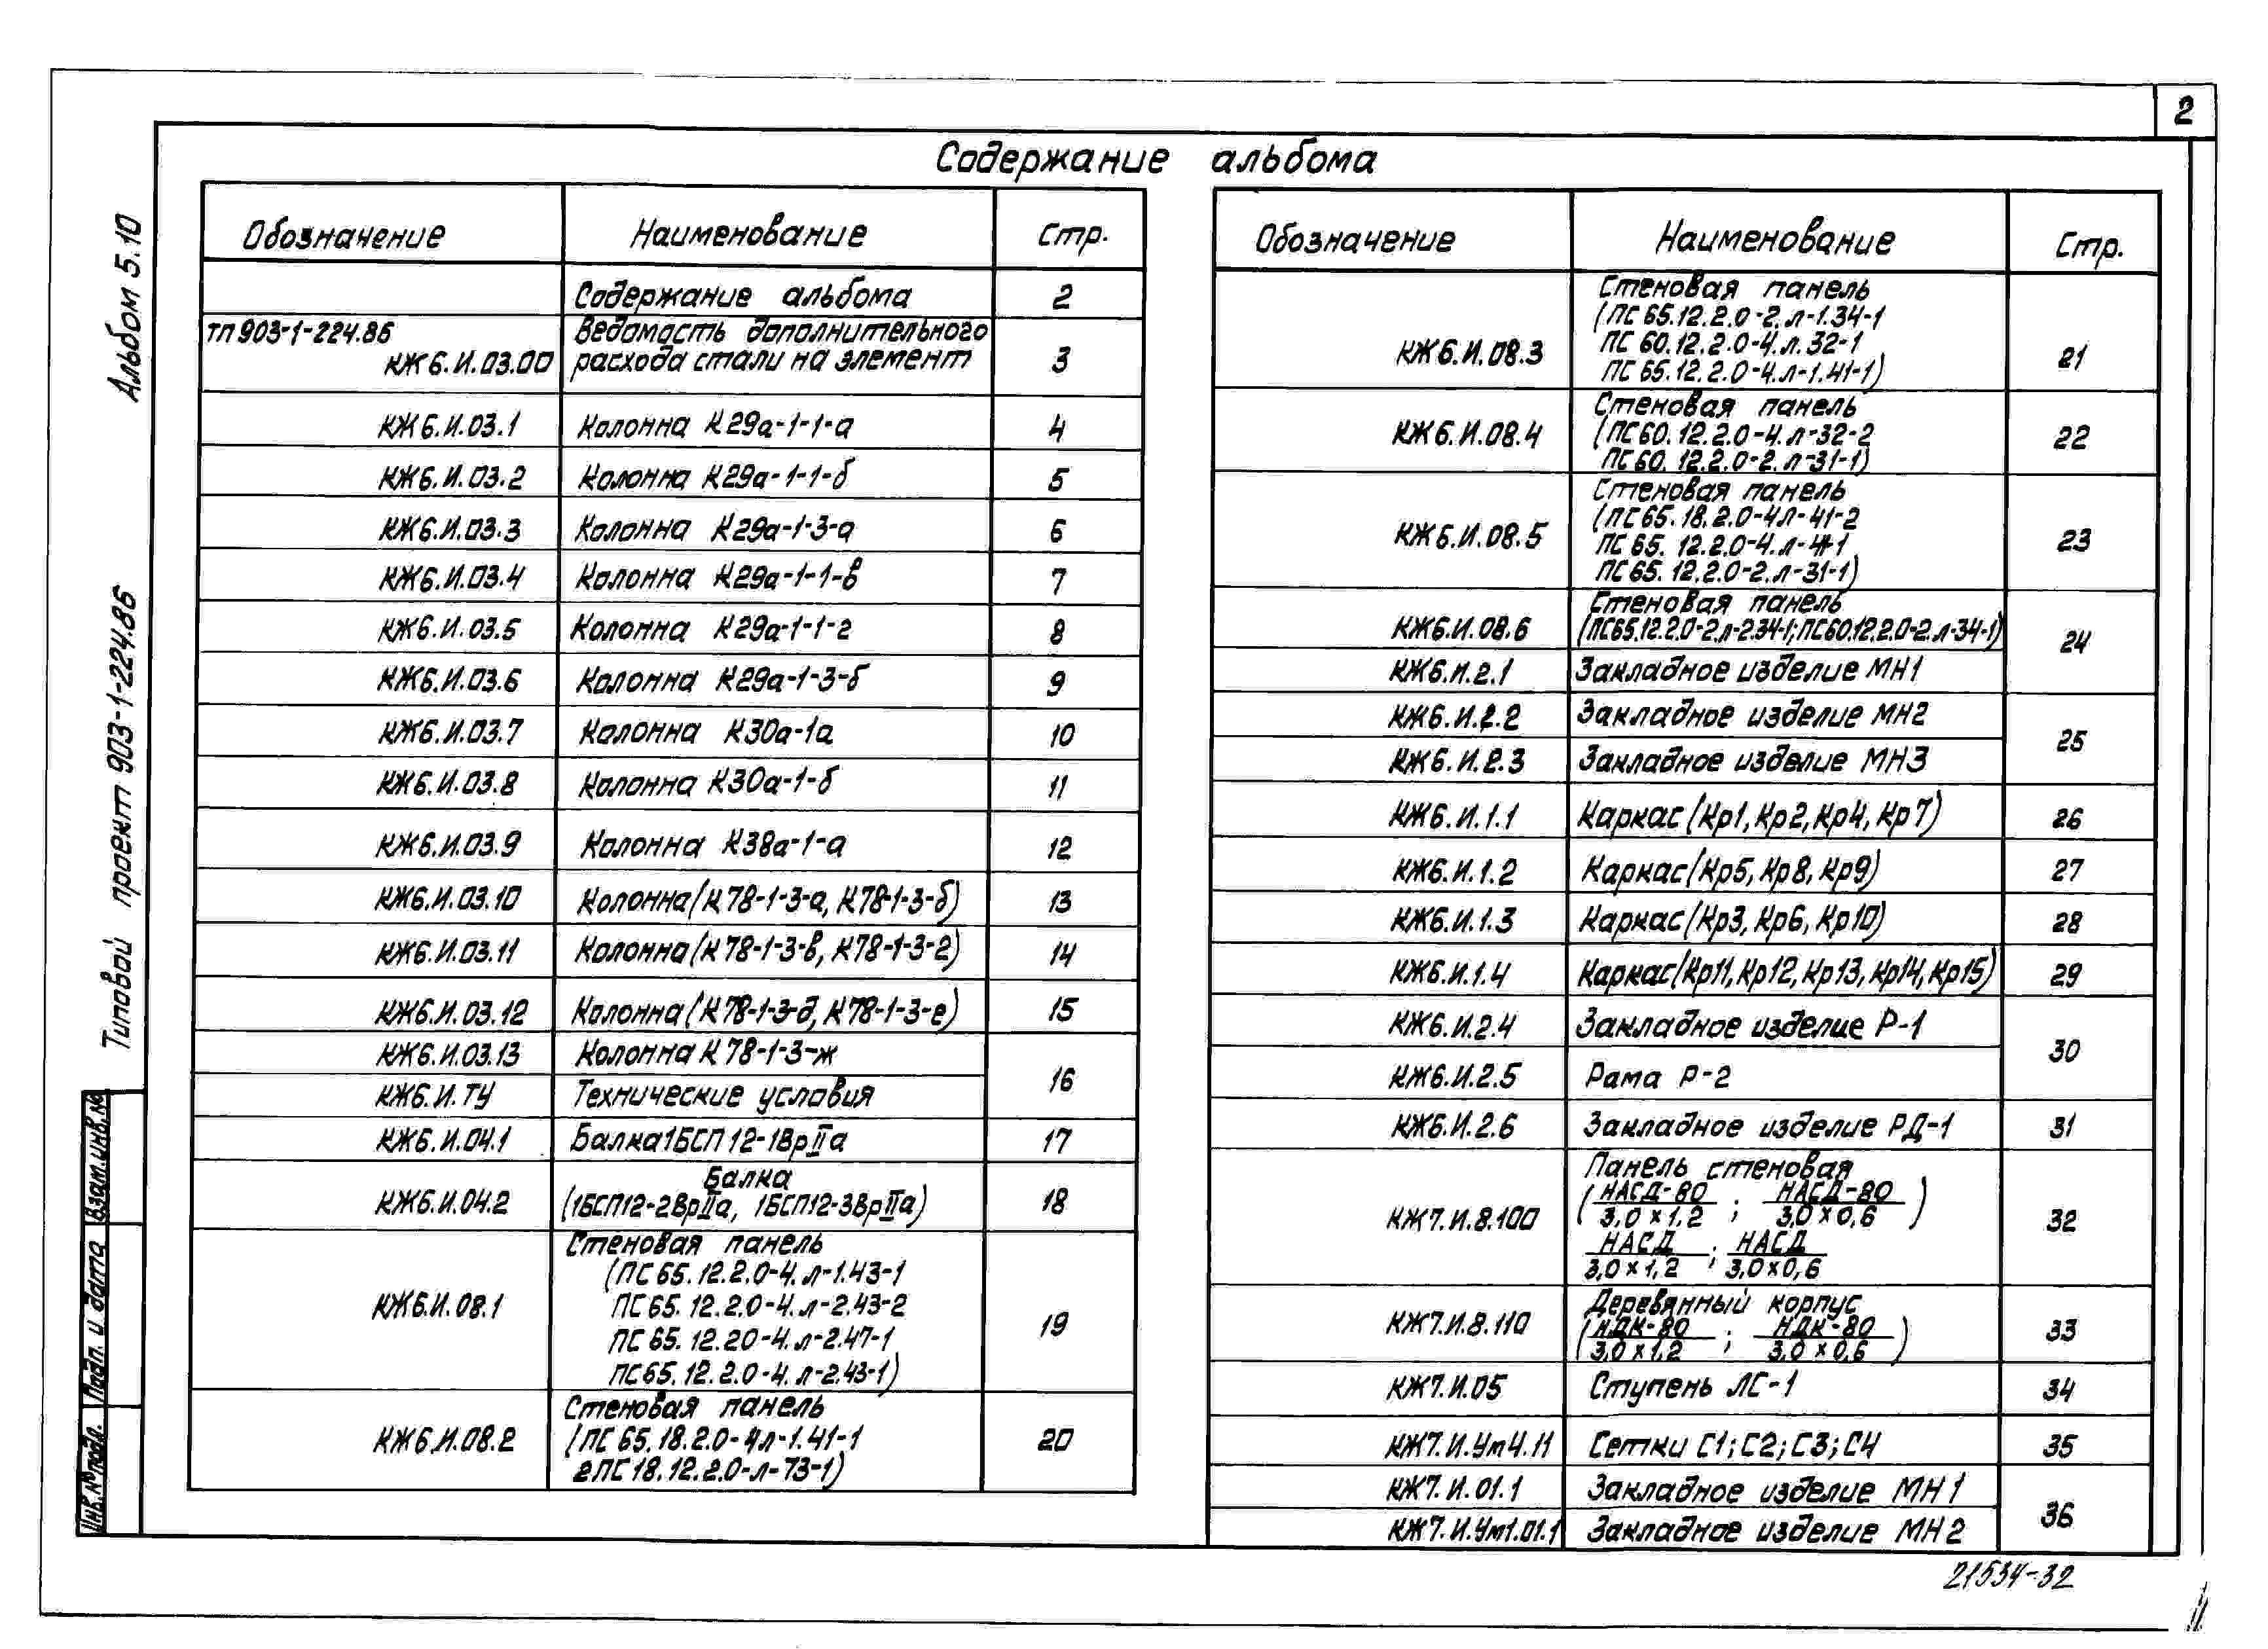 2
Содержание альбома
Альбом 5.10
Типовой проект 903-1-224.86
Взам.инв.№
Подп. и дата
Инв.№подл.
Обозначение Наименование Стр.
Содержание альбома 2
ТП903-1-224.86 Ведомасть дополнительного
КЖ6.И.03.00 расхода стали на элемент 3
КЖ6.И.03.1 Колонна К29а-1-1-а 4
КЖ6.И.03.2 Колонна К29а-1-1-б 5
КЖ6.И.03.3 Колонна К29а-1-3-а 6
КЖ6.И.03.4 Колонна К29а-1-1-в 7
КЖ6.И.03.5 Колонна К29а-1-1-г 8
КЖ6.И.03.6 Колонна К29а-1-3-б 9
КЖ6.И.03.7 Колонна К30а-1а 10
КЖ6.И.03.8 Колонна К30а-1-б 11
КЖ6.И.03.9 Колонна К38а-1-а 12
КЖ6.И.03.10 Колонна (К78-1-3-а, К78-1-3-б) 13
КЖ6.И.03.11 Колонна (К78-1-3-в, К78-1-3-г) 14
КЖ6.И.03.12 Колонна (К78-1-3-д, К78-1-3-е) 15
КЖ6.И.03.13 Колонна К78-1-3-ж
16
КЖ6.И.ТУ Технические условия
КЖ6.И.04.1 Балка 1БСП12-1ВрIIа 17
Балка
КЖ6.И.04.2 (1БСП12-2ВрIIа, 1БСП12-3ВрIIа) 18
Стеновая панель
(ПС65.12.2.0-4.л-1.43-1
КЖ6.И.08.1 ПС65.12.2.0-4.л-2.43-2 19
ПС65.12.20-4.л-2.47-1
ПС65.12.2.0-4.л-2.43-1)
Стеновая панель
КЖ6.И.08.2 (ПС65.18.2.0-4л-1.41-1 20
2ПС18.12.2.0-л-73-1)
Обозначение Наименование Стр.
Стеновая панель
(ПС65.12.2.0-2.л-1.34-1
КЖ6.И.08.3 ПС60.12.2.0-4.л.32-1 21
ПС65.12.2.0-4.л-1.41-1)
Стеновая панель
КЖ6.И.08.4 (ПС60.12.2.0-4.л-32-2 22
ПС60.12.2.0-2.л-31-1)
Стеновая панель
(ПС65.18.2.0-4л-41-2
КЖ6.И.08.5 ПС65.12.2.0-4.л-41-1 23
ПС65.12.2.0-2.л-31-1)
Стеновая панель
КЖ6.И.08.6 (ПС65.12.2.0-2.л-2.34-1; ПС60.12.2.0-2.л-34-1)
24
КЖ6.И.2.1 Закладное изделие МН1
КЖ6.И.2.2 Закладное изделие МН2
25
КЖ6.И.2.3 Закладное изделие МН3
КЖ6.И.1.1 Каркас (Кр1, Кр2, Кр4, Кр7) 26
КЖ6.И.1.2 Каркас (Кр5, Кр8, Кр9) 27
КЖ6.И.1.3 Каркас (Кр3, Кр6, Кр10) 28
КЖ6.И.1.4 Каркас (Кр11, Кр12, Кр13, Кр14, Кр15) 29
КЖ6.И.2.4 Закладное изделие Р-1
30
КЖ6.И.2.5 Рама Р-2
КЖ6.И.2.6 Закладное изделие РД-1 31
Панель стеновая
(НАСД-80 ; НАСД-80
КЖ7.И.8.100 3,0×1,2 3,0×0,6) 32
НАСД ; НАСД
3,0×1,2 3,0×0,6
Деревянный корпус
КЖ7.И.8.110 (НДК-80 ; НДК-80 33
3,0×1,2 3,0×0,6)
КЖ7.И.05 Ступень ЛС-1 34
КЖ7.И.Ум4.11 Сетки С1; С2; С3; С4 35
КЖ7.И.01.1 Закладное изделие МН1
36
КЖ7.И.Ум1.01.1 Закладное изделие МН2
21534-32